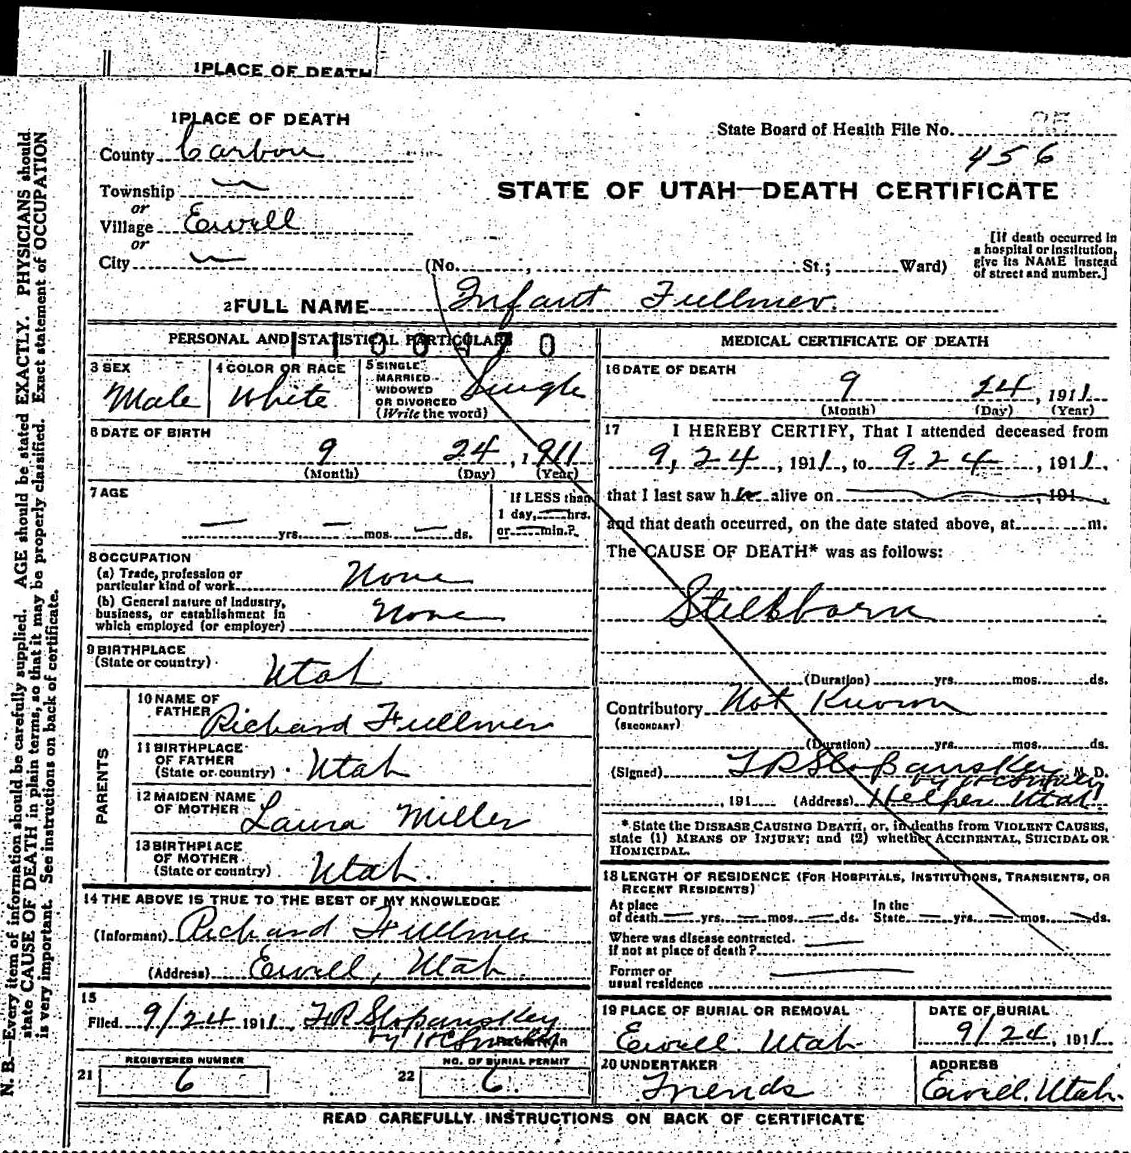 1 PLACE OF DEATH
1 PLACE OF DEATH
State Board of Health File No.
456
County Carbon
STATE OF UTAH—DEATH CERTIFICATE
Township —
or
Village Ewell
or
City —
(No. , St.; Ward)
[If death occurred in a hospital or institution, give its NAME instead of street and number.]
2 FULL NAME Infant Fullmer.
PERSONAL AND STATISTICAL PARTICULARS
1100170
3 SEX
Male
4 COLOR OR RACE
White
5 SINGLE
MARRIED
WIDOWED
OR DIVORCED
(Write the word)
Single
6 DATE OF BIRTH
9 24, 1911
(Month) (Day) (Year)
7 AGE
— yrs. — mos. — ds.
If LESS than
1 day, — hrs.
or — min.?
8 OCCUPATION
(a) Trade, profession or
particular kind of work None
(b) General nature of Industry,
business, or establishment in
which employed (or employer) None
9 BIRTHPLACE
(State or country) Utah
PARENTS
10 NAME OF
FATHER Richard Fullmer
11 BIRTHPLACE
OF FATHER
(State or country) Utah
12 MAIDEN NAME
OF MOTHER Laura Miller
13 BIRTHPLACE
OF MOTHER
(State or country) Utah.
14 THE ABOVE IS TRUE TO THE BEST OF MY KNOWLEDGE
(Informant) Richard Fullmer
(Address) Ewell, Utah
15
Filed 9/24 1911, T.R. Slopanskey
REGISTRAR
REGISTERED NUMBER
21 6
NO. OF BURIAL PERMIT
22 6
MEDICAL CERTIFICATE OF DEATH
16 DATE OF DEATH
9 24, 1911
(Month) (Day) (Year)
17 I HEREBY CERTIFY, That I attended deceased from
9, 24, 1911, to 9. 24, 1911,
that I last saw h alive on , 191 ,
and that death occurred, on the date stated above, at m.
The CAUSE OF DEATH* was as follows:
Stillborn
(Duration) yrs. mos. ds.
Contributory Not Known
(SECONDARY)
(Duration) yrs. mos. ds.
(Signed) T R Slopanskey M. D.
, 191 (Address) Helper Utah.
* State the DISEASE CAUSING DEATH, or, in deaths from VIOLENT CAUSES,
state (1) MEANS OF INJURY; and (2) whether ACCIDENTAL, SUICIDAL OR
HOMICIDAL.
18 LENGTH OF RESIDENCE (FOR HOSPITALS, INSTITUTIONS, TRANSIENTS, OR
RECENT RESIDENTS)
At place
of death — yrs. — mos. — ds.
In the
State — yrs. — mos. — ds.
Where was disease contracted.
If not at place of death?
Former or
usual residence
19 PLACE OF BURIAL OR REMOVAL
Ewell. Utah
DATE OF BURIAL
9/24, 1911
20 UNDERTAKER
Friends
ADDRESS
Ewell. Utah.
READ CAREFULLY INSTRUCTIONS ON BACK OF CERTIFICATE
N. B.—Every item of information should be carefully supplied. AGE should be stated EXACTLY. PHYSICIANS should
state CAUSE OF DEATH in plain terms, so that it may be properly classified. Exact statement of OCCUPATION
is very important. See instructions on back of certificate.